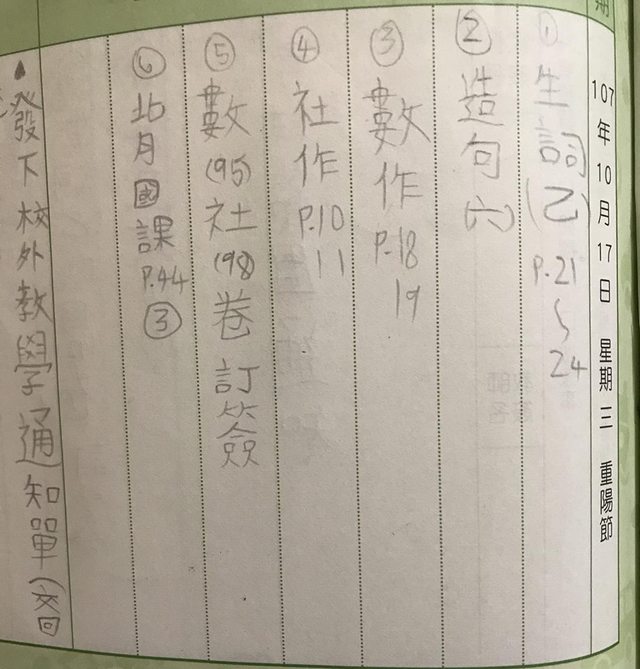 107年10月17日 星期三 重陽節
①生詞(乙) P.21~24
②造句(六)
③數作P.18 19
④社作P.10 11
⑤數(95)社(98)卷訂簽
⑥背國課P.44③
▲發下校外教學通知單(交回